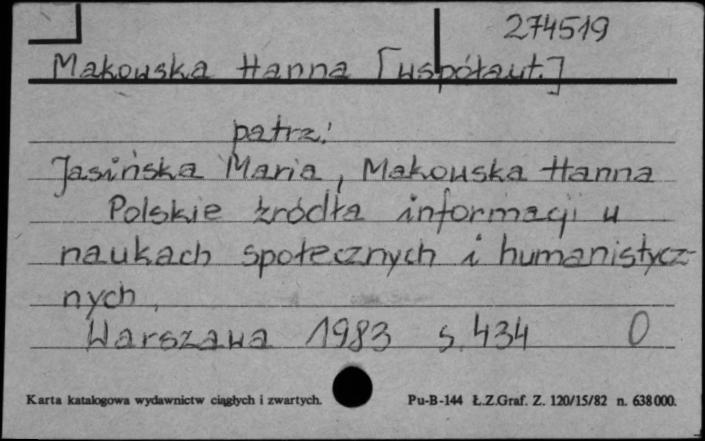 274519
Makowska Hanna [współaut.]
patrz:
Jasińska Maria, Makowska Hanna
Polskie źródła informacji w
naukach społecznych i humanistycz-
nych.
Warszawa 1983 s. 434 0
Karta katalogowa wydawnictw ciągłych i zwartych. Pu-B-144 Ł.Z.Graf. Z. 120/15/82 n. 638000.